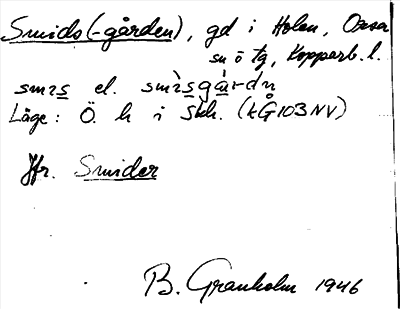 Smids(-gården), gd i Holen, Orsa
sn ö tg, Kopparb. l.
smɪs el. smɪ̀sgɑ̀rdn̥
Läge: Ö. h i skh. (kG103NV)
Jfr. Smider
B. Granholm 1946